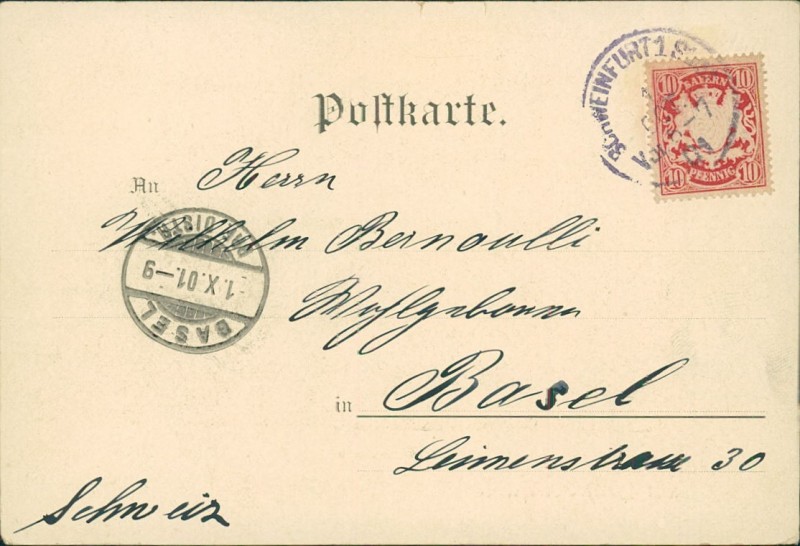 SCHWEINFURT 1
BAYERN
10 10
10 PFENNIG 10
Postkarte.
An Herrn
Wilhelm Bernoulli
Wohlgeboren
in Basel
Leimenstrasse 30
Schweiz
BASEL
1.X.01.-9